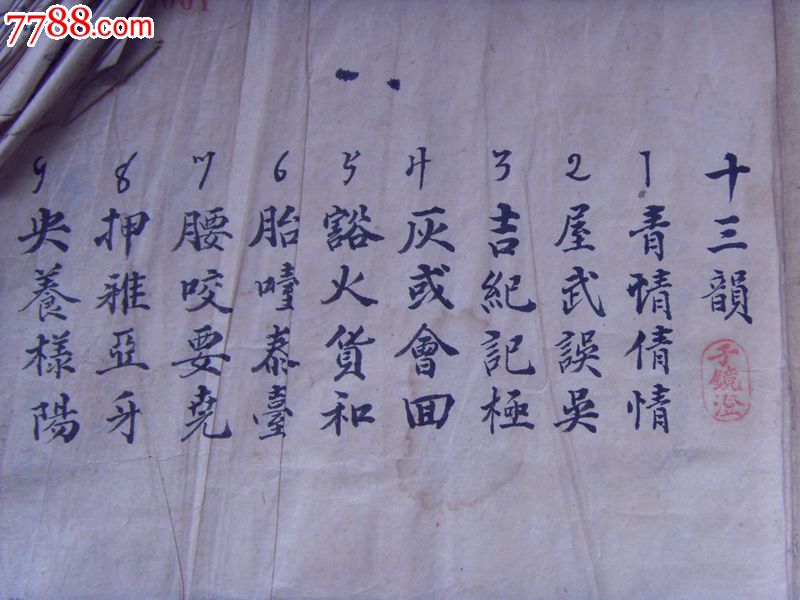 7788.com
十三韻
子鏡澄
1 青請倩情
2 屋武誤吳
3 吉紀記極
4 灰或會回
5 豁火貨和
6 胎噎泰臺
7 腰咬要堯
8 押雅亞牙
9 央養樣陽